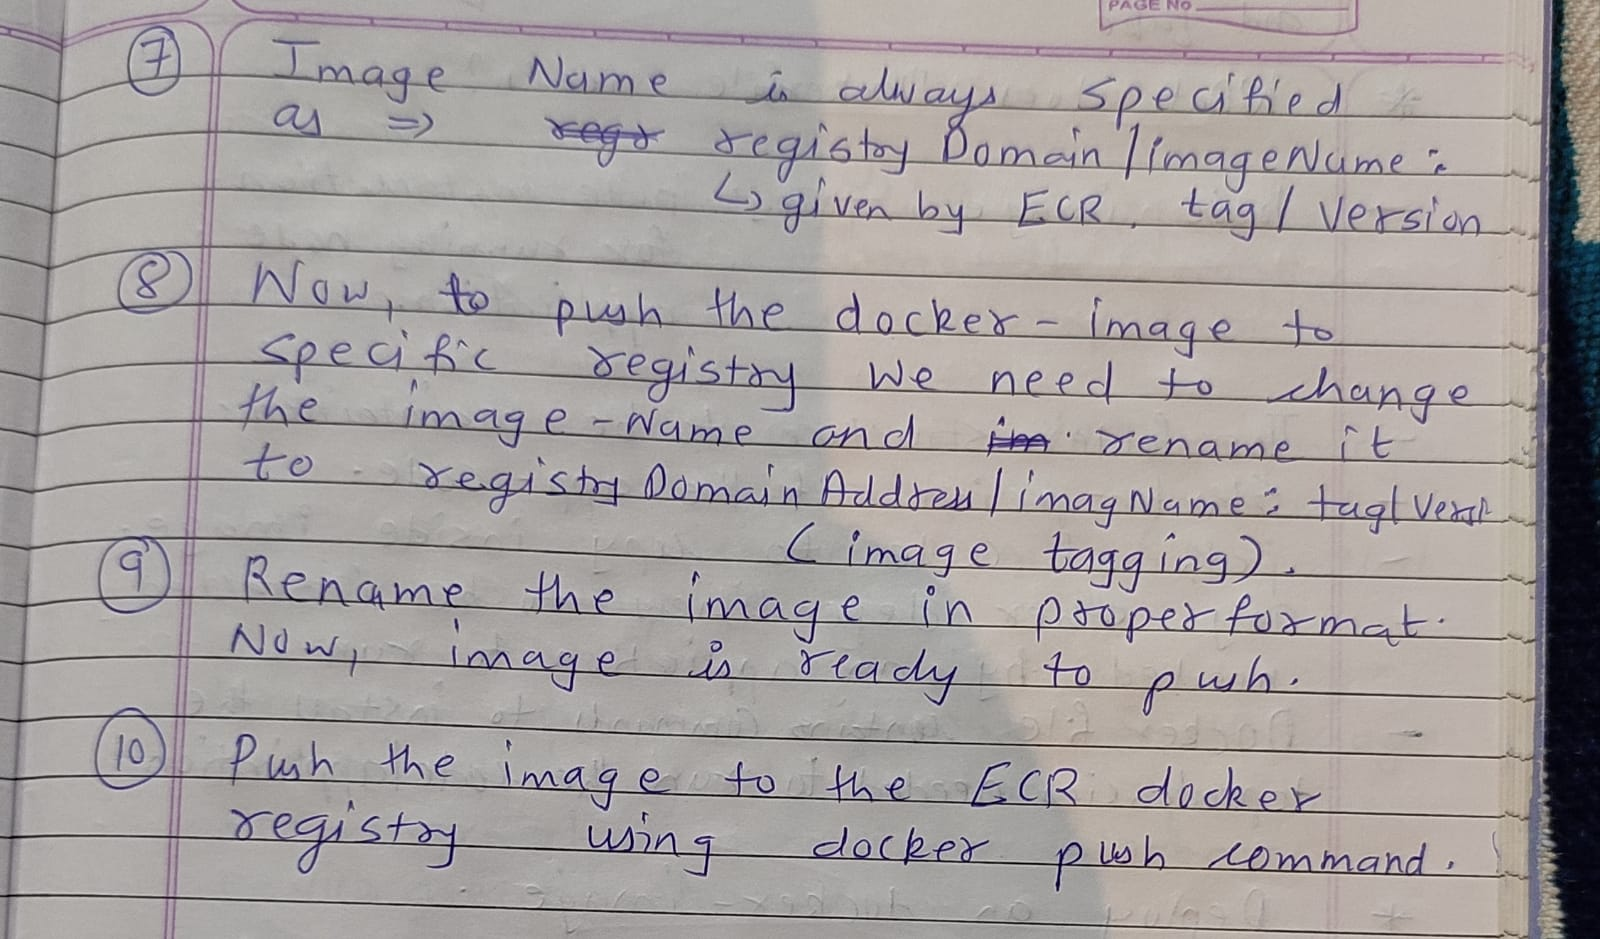 PAGE NO
7 Image Name is always specified
as => regr registry Domain/imageName:
↳ given by ECR. tag/Version
8 Now, to push the docker-image to
specific registry we need to change
the image-Name and im rename it
to registry Domain Address/imagName: tag/Versi
(image tagging).
9 Rename the image in proper format.
Now, image is ready to push.
10 Push the image to the ECR docker
registry using docker push command.